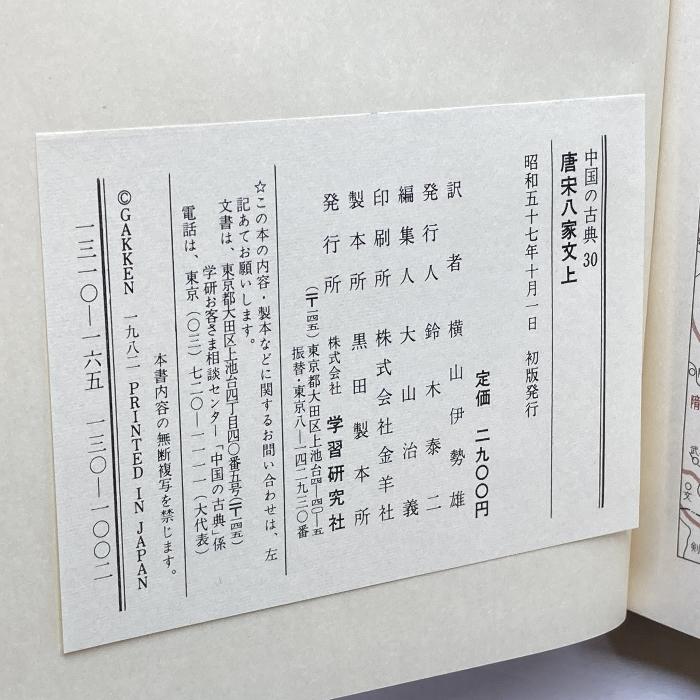 中国の古典 30
唐宋八家文 上
昭和五十七年十月一日　初版発行
定価　二九〇〇円
訳者　横山伊勢雄
発行人　鈴木泰二
編集人　大山治義
印刷所　株式会社金羊社
製本所　黒田製本所
発行所　株式会社 学習研究社
(〒一四五)東京都大田区上池台四—四〇—五
振替・東京八—一四二九三〇番
☆この本の内容・製本などに関するお問い合わせは、左
記あてお願いします。
文書は、東京都大田区上池台四丁目四〇番五号(〒一四五)
学研お客さま相談センター「中国の古典」係
電話は、東京(〇三)七二〇—一一一一(大代表)
本書内容の無断複写を禁じます。
©GAKKEN 一九八二 PRINTED IN JAPAN
一三一〇—一六五 一三〇—一〇〇二
隋
武
文
剣